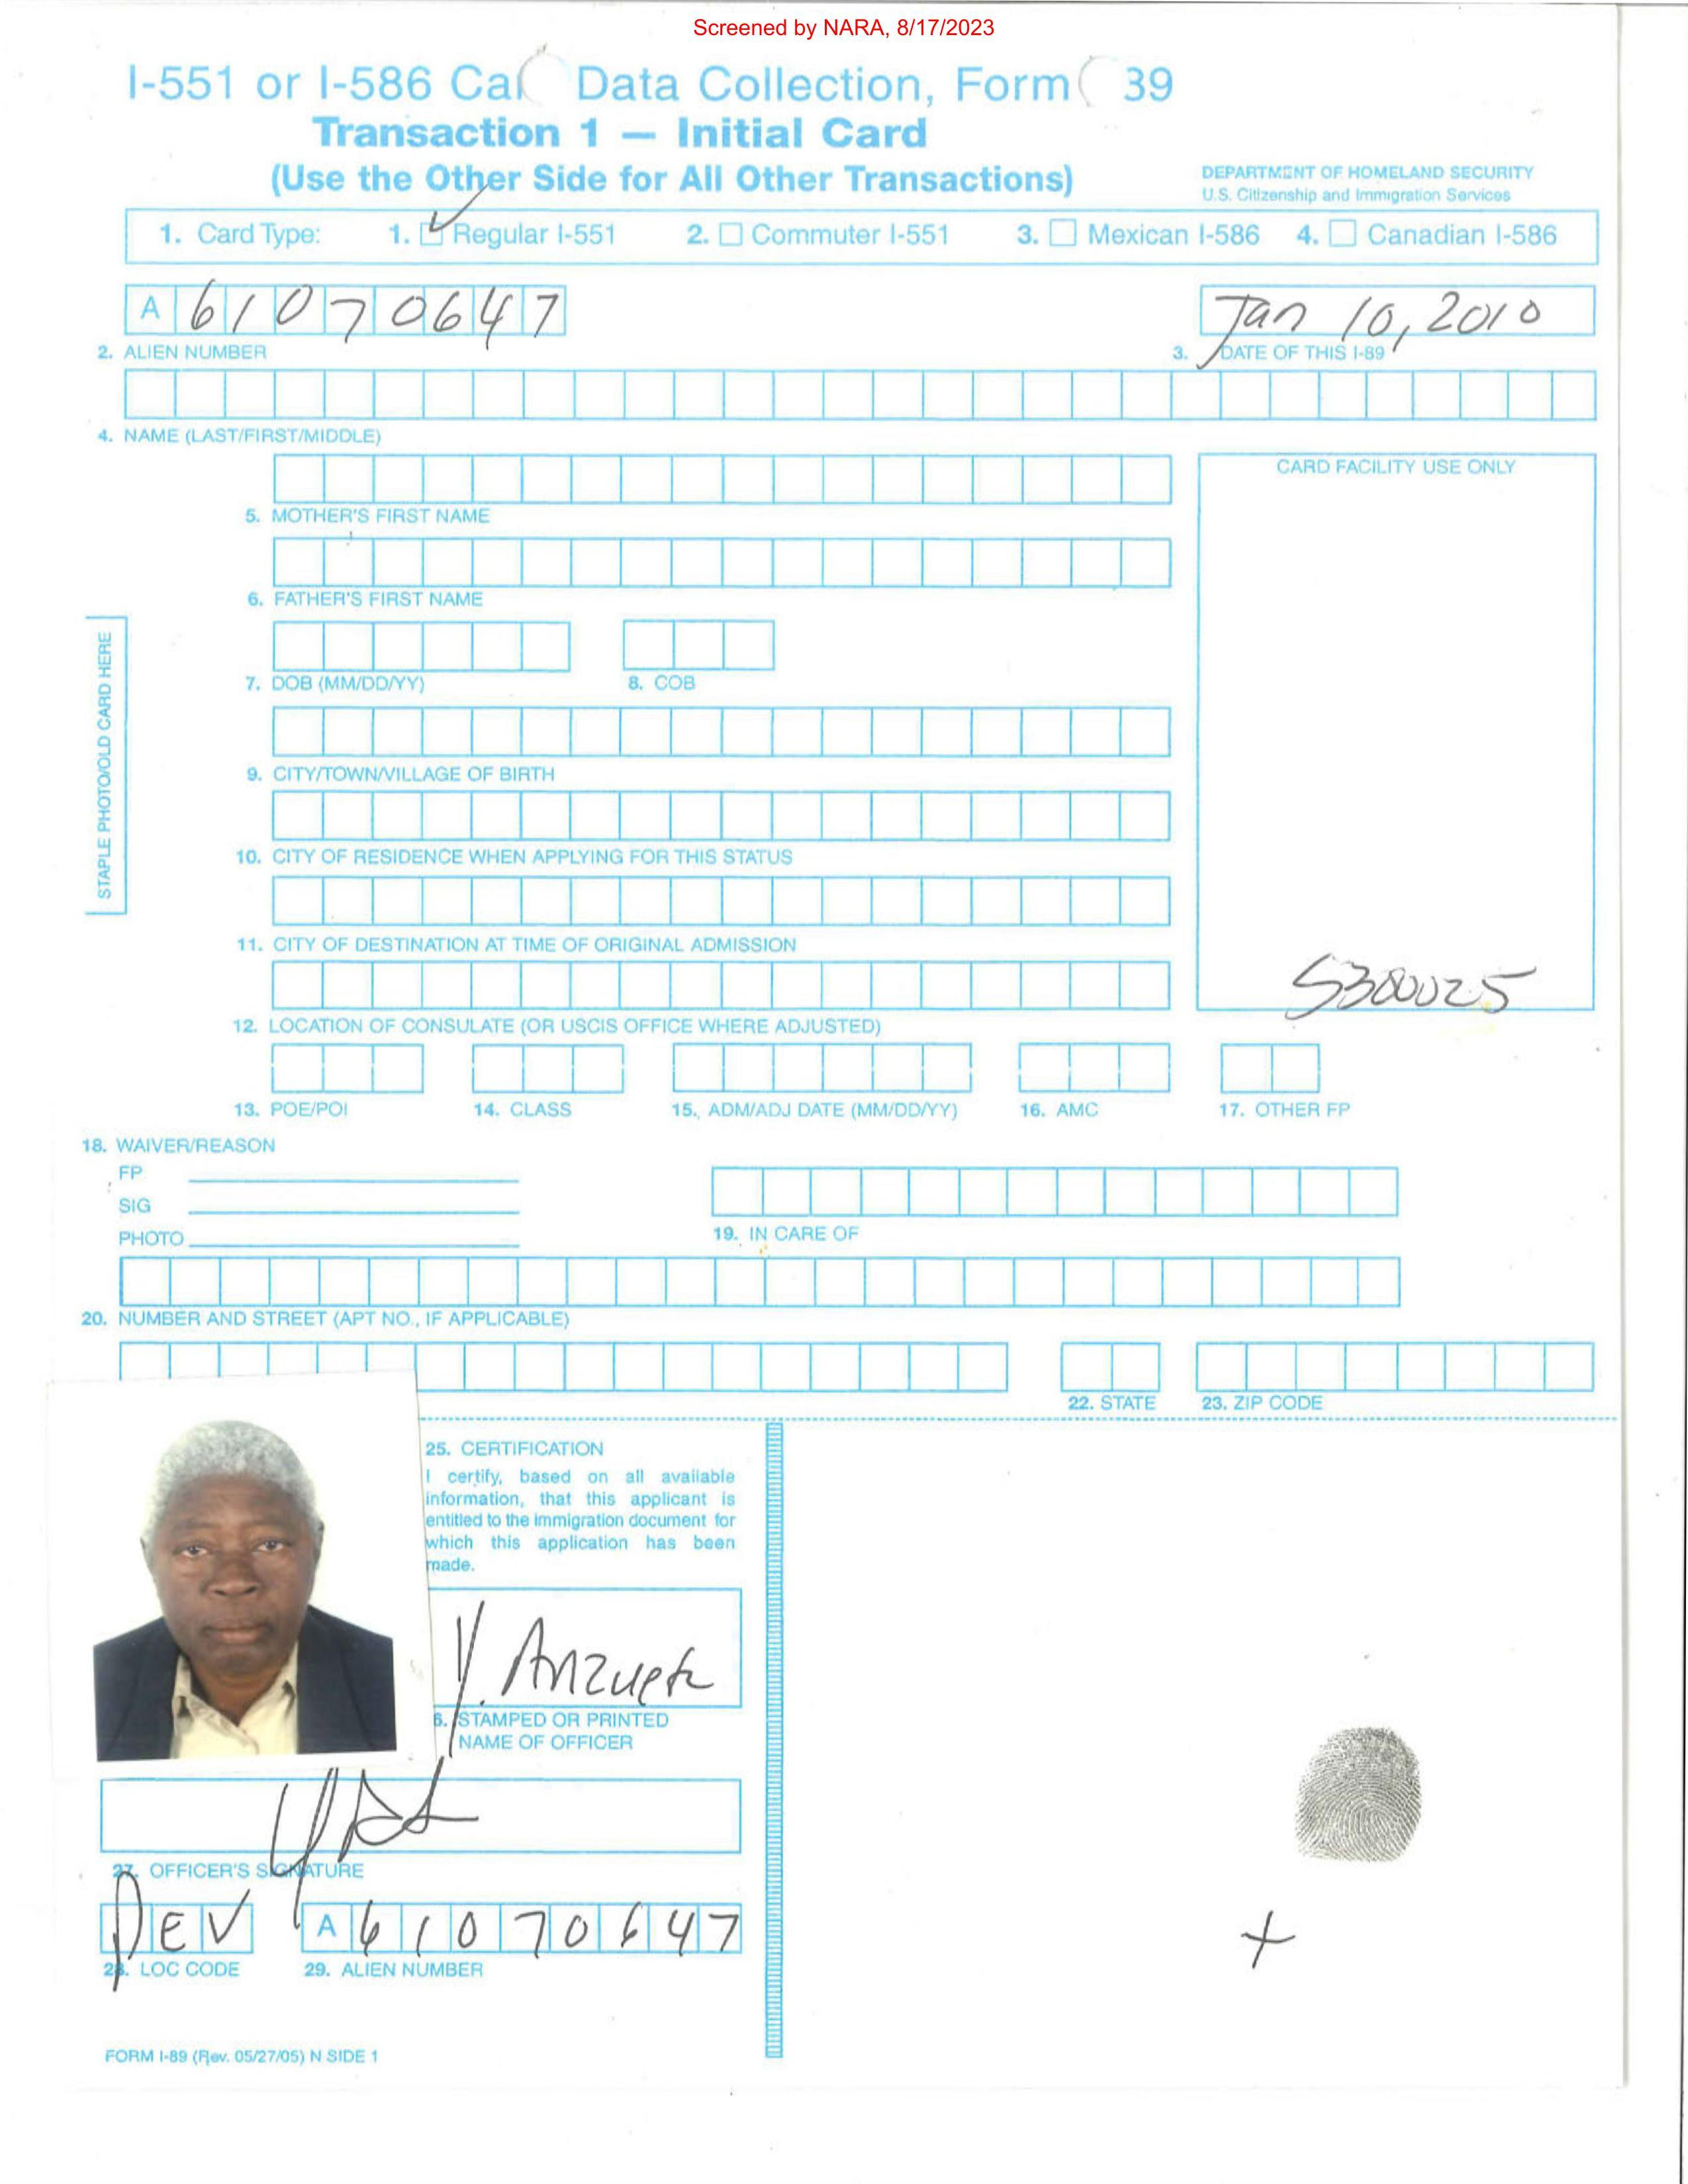 Screened by NARA, 8/17/2023
I-551 or I-586 Ca Data Collection, Form 39
Transaction 1 — Initial Card
(Use the Other Side for All Other Transactions)
DEPARTMENT OF HOMELAND SECURITY
U.S. Citizenship and Immigration Services
1. Card Type: 1. Regular I-551 2. Commuter I-551 3. Mexican I-586 4. Canadian I-586
A 61070647
Jan 10, 2010
2. ALIEN NUMBER
3. DATE OF THIS I-89
4. NAME (LAST/FIRST/MIDDLE)
CARD FACILITY USE ONLY
5. MOTHER'S FIRST NAME
6. FATHER'S FIRST NAME
STAPLE PHOTO/OLD CARD HERE
7. DOB (MM/DD/YY) 8. COB
9. CITY/TOWN/VILLAGE OF BIRTH
10. CITY OF RESIDENCE WHEN APPLYING FOR THIS STATUS
11. CITY OF DESTINATION AT TIME OF ORIGINAL ADMISSION
5300025
12. LOCATION OF CONSULATE (OR USCIS OFFICE WHERE ADJUSTED)
13. POE/POI 14. CLASS 15. ADM/ADJ DATE (MM/DD/YY) 16. AMC 17. OTHER FP
18. WAIVER/REASON
FP
SIG
PHOTO
19. IN CARE OF
20. NUMBER AND STREET (APT NO., IF APPLICABLE)
22. STATE 23. ZIP CODE
25. CERTIFICATION
I certify, based on all available
information, that this applicant is
entitled to the immigration document for
which this application has been
made.
Y. Anzueta
6. STAMPED OR PRINTED
NAME OF OFFICER
27. OFFICER'S SIGNATURE
DEV A 61070647
28. LOC CODE 29. ALIEN NUMBER
FORM I-89 (Rev. 05/27/05) N SIDE 1